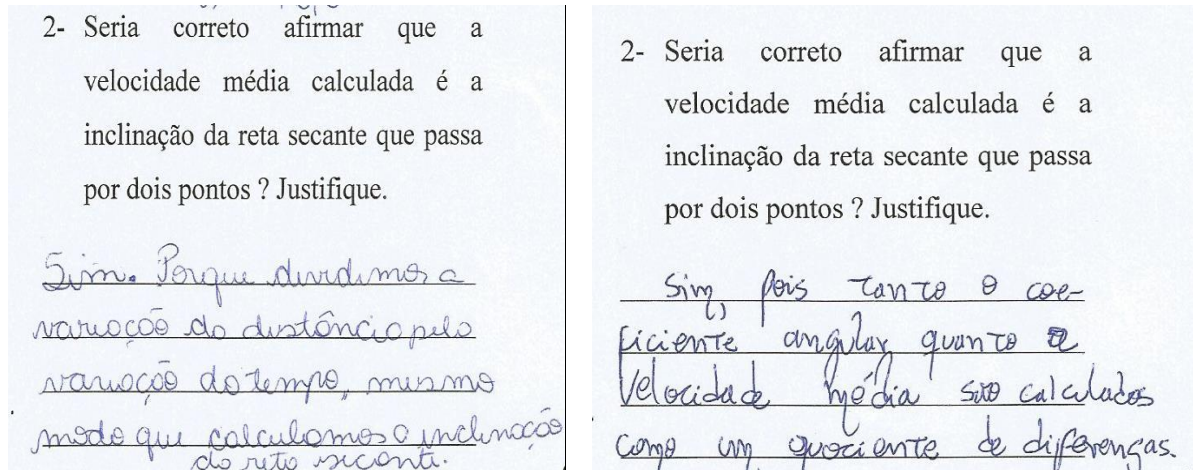 2- Seria correto afirmar que a
velocidade média calculada é a
inclinação da reta secante que passa
por dois pontos ? Justifique.
Sim. Porque dividimos a
variação da distância pela
variação do tempo, mesmo
modo que calculamos a inclinação
da reta secante.
2- Seria correto afirmar que a
velocidade média calculada é a
inclinação da reta secante que passa
por dois pontos ? Justifique.
Sim, pois tanto o coe-
ficiente angular quanto a
velocidade média são calculados
como um quociente de diferenças.